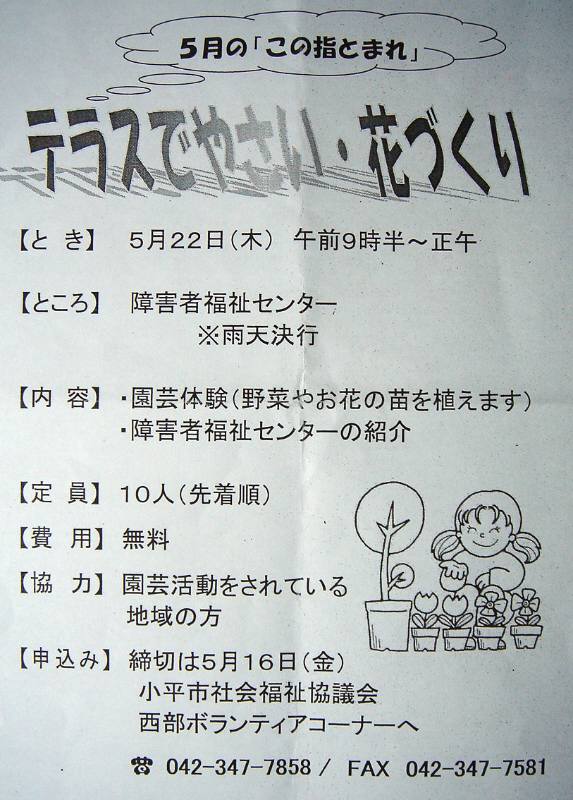 5月の「この指とまれ」
テラスでやさい・花づくり
【と き】 5月22日(木) 午前9時半～正午
【ところ】 障害者福祉センター
※雨天決行
【内 容】 ・園芸体験(野菜やお花の苗を植えます)
・障害者福祉センターの紹介
【定 員】 10人(先着順)
【費 用】 無料
【協 力】 園芸活動をされている
地域の方
【申込み】 締切は5月16日(金)
小平市社会福祉協議会
西部ボランティアコーナーへ
☎ 042-347-7858 / FAX 042-347-7581